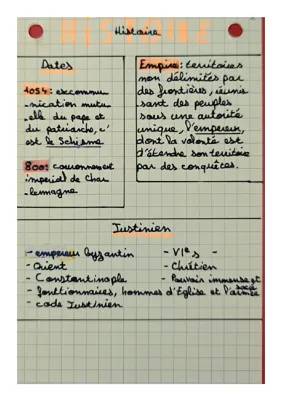 HISTOIRE
Histoire
Dates
1054: excommu
-nication mutu
-elle du pape et
du patriarche, c'
est le Schisme
800: couronnement
impérial de Char
-lemagne
Empire: territoires
non délimités par
des frontières, réunis
-sant des peuples
sous une autorité
unique, l'empereur,
dont la volonté est
d'étendre son territoire
par des conquêtes.
Justinien
- empereur byzantin
- Orient
- Constantinople
- fonctionnaires, hommes d'Église et l'armée
- code Justinien
- VIe s
- Chrétien
- Pouvoir immense et
sacré